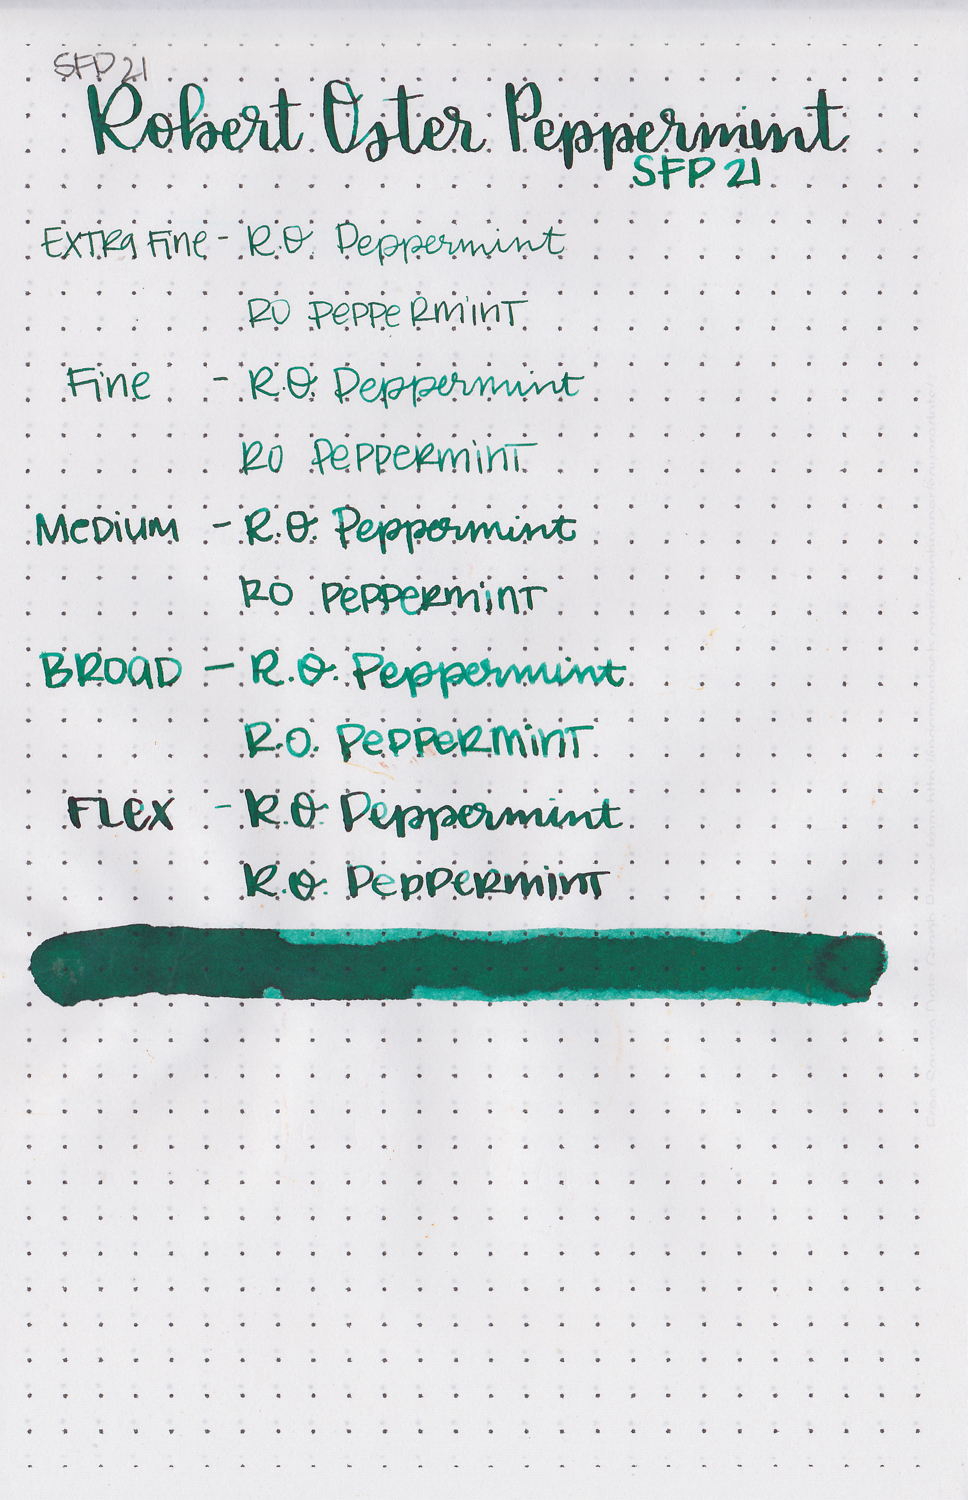 SFP 21
Robert Oster Peppermint
SFP 21
Extra Fine - R.O. Peppermint
RO Peppermint
Fine - R.O. Peppermint
RO Peppermint
Medium - R.O. Peppermint
RO Peppermint
Broad - R.O. Peppermint
R.O. Peppermint
Flex - R.O. Peppermint
R.O. Peppermint